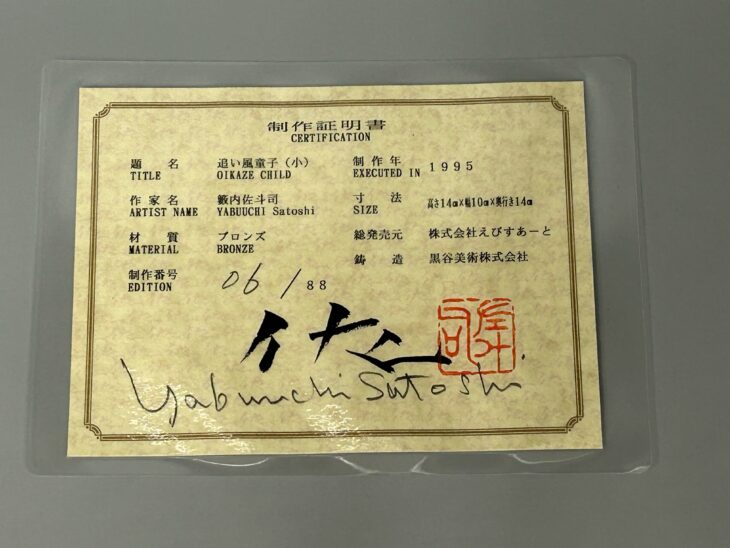 制作証明書
CERTIFICATION
題 名 追い風童子(小) 制作年 1995
TITLE OIKAZE CHILD EXECUTED IN
作家名 籔内佐斗司 寸 法 高さ14㎝×幅10㎝×奥行き14㎝
ARTIST NAME YABUUCHI Satoshi SIZE
材 質 ブロンズ 総発売元 株式会社えびすあーと
MATERIAL BRONZE 鋳 造 黒谷美術株式会社
制作番号 06/88
EDITION
Yabuuchi Satoshi